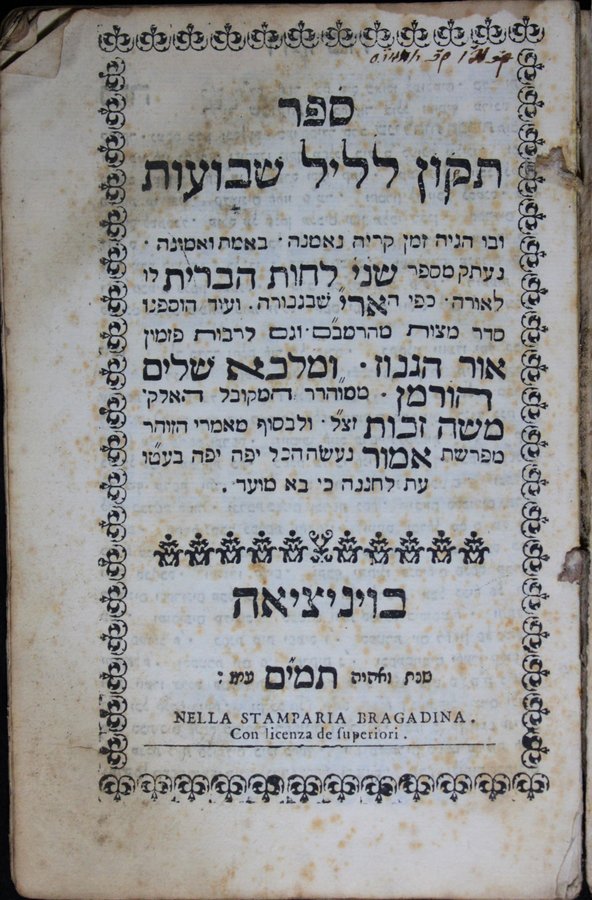 ספר
תקון לליל שבועות
ובו הגיה זמן קריה נאמנה · באמת ואמונה ·
נעתק מספר שני לחות הברית לו
לאורה · כפי הארי שבגבורה · ועוד הוספנו
סדר מצות מהרמבם · וגם לרבות פזמון
אור הגנוז · ומלכא שלים
הורמן · ממוהרר המקובל האלק·
משה זכות זצ"ל · ולבסוף מאמרי הזוהר
מפרשת אמור נעשה הכל יפה יפה בעטו
עת לחננה כי בא מועד .
בויניציאה
שנת ואהיה תמים עמו :
NELLA STAMPARIA BRAGADINA .
Con licenza de ſuperiori .